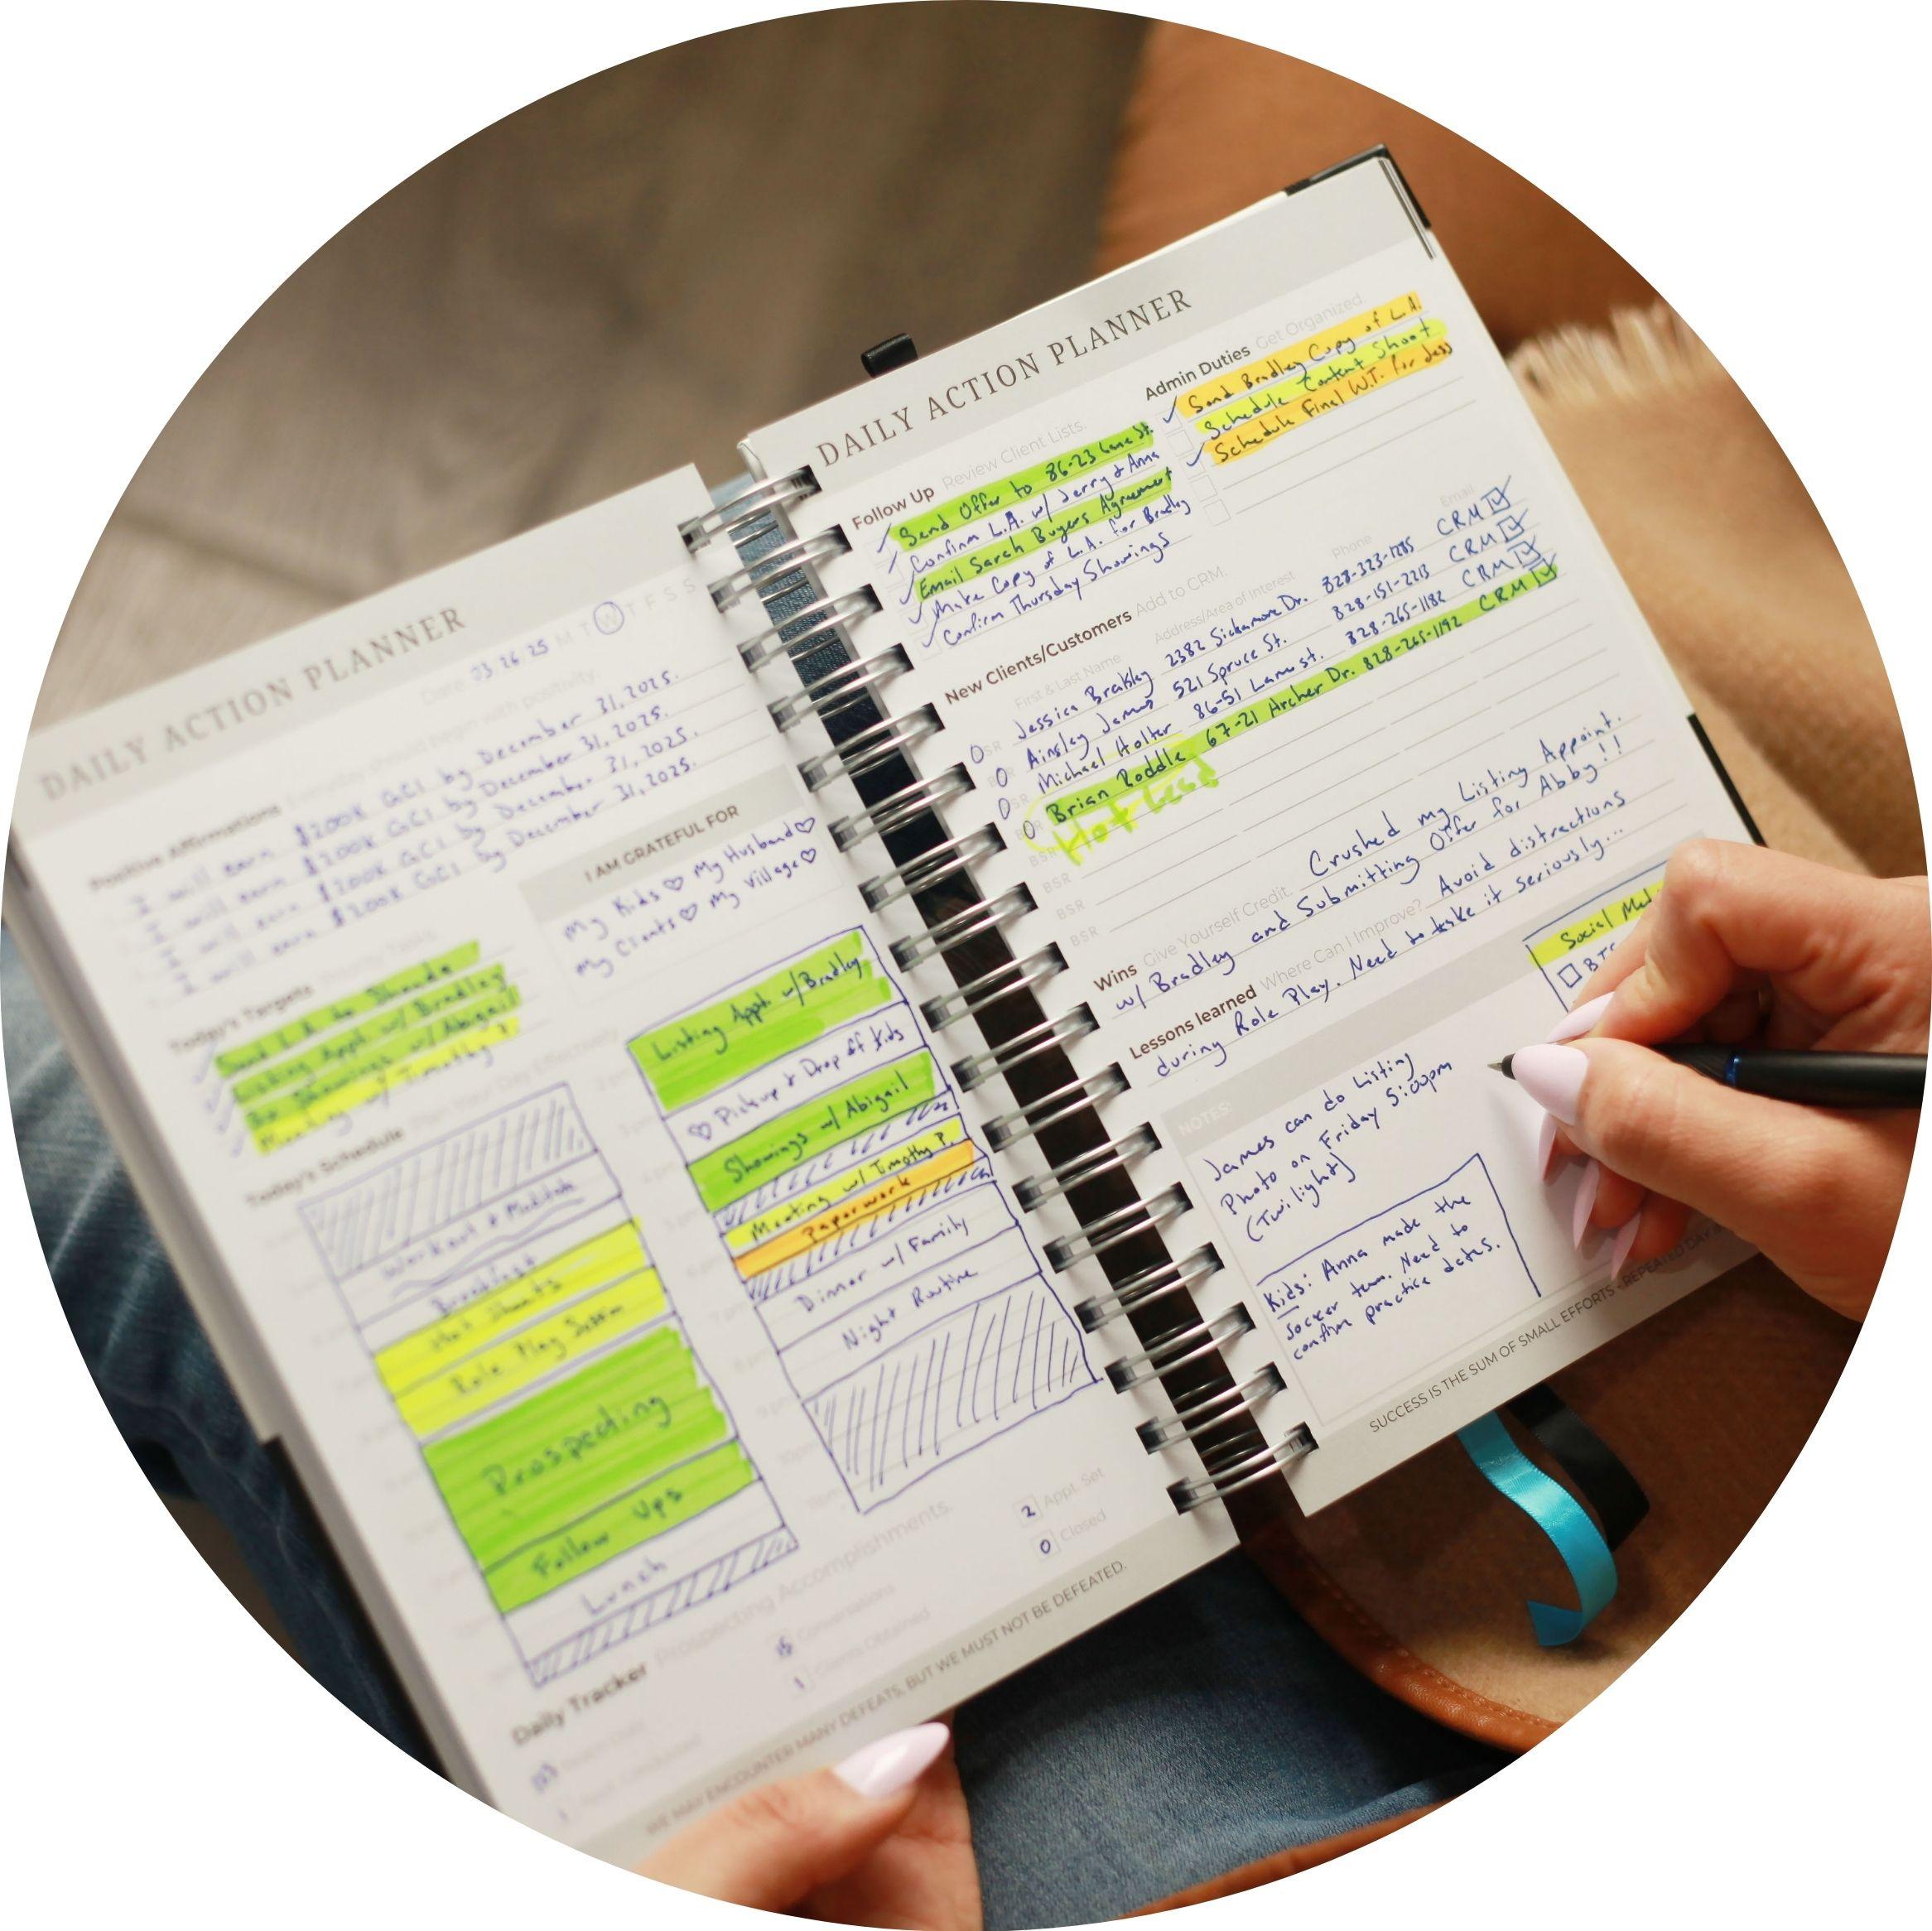 DAILY ACTION PLANNER
Date 03 26 25 M T W T F S S
Positive Affirmations Everyday should begin with positivity.
I will earn $200K GCI by December 31, 2025.
I will earn $200K GCI by December 31, 2025.
I will earn $200K GCI by December 31, 2025.
I will earn $200K GCI by December 31, 2025.
I AM GRATEFUL FOR
My Kids ♡ My Husband ♡
My Clients ♡ My Village ♡
Today's Targets
Send L.A. to
Listing Appt. w/ Bradley
Showings w/ Abigail
Meeting w/ Timothy
Today's Schedule
Workout & Meditate
Breakfast
Role Play Session
Prospecting
Follow Ups
Lunch
Listing Appt. w/ Bradley
♡ Pickup & Drop off kids
Showings w/ Abigail
Meeting w/ Timothy P.
Paperwork
Dinner w/ Family
Night Routine
Daily Tracker Prospecting Accomplishments.
15 Conversations
1 Clients Obtained
2 Appt. Set
0 Closed
WE MAY ENCOUNTER MANY DEFEATS, BUT WE MUST NOT BE DEFEATED.
DAILY ACTION PLANNER
Follow Up Review Client Lists.
Send Offer to 86-23 Lane St.
Confirm L.A. w/ Jerry & Anna
Email Sarah Buyers Agreement
Make Copy of L.A. for Bradley
Confirm Thursday Showings
Admin Duties Get Organized.
Send Bradley Copy of L.A.
Schedule Content Shoot
Schedule Final W.T. for Jess
New Clients/Customers Add to CRM.
First & Last Name Address/Area of Interest Phone Email
BSR Jessica 2382 Sickamore Dr. 828-323-1285 CRM
BSR Ainsley James 521 Spruce St. 828-151-2213 CRM
BSR Michael Holter 86-51 St. 828-265-1182 CRM
BSR Brian Roddle 67-21 Archer Dr. 828-265-1192 CRM
Hot Lead
BSR
BSR
BSR
Wins Give Yourself Credit. Crushed my Listing Appoint.
w/ Bradley and Submitting Offer for Abby!!
Lessons learned Where Can I Improve? Avoid distractions
during Role Play. Need to take it seriously...
NOTES:
James can do Listing
Photo on Friday 5:00pm
(Twilight)
Social
Kids: Anna made the
soccer team. Need to
confirm practice dates.
SUCCESS IS THE SUM OF SMALL EFFORTS - REPEATED DAY